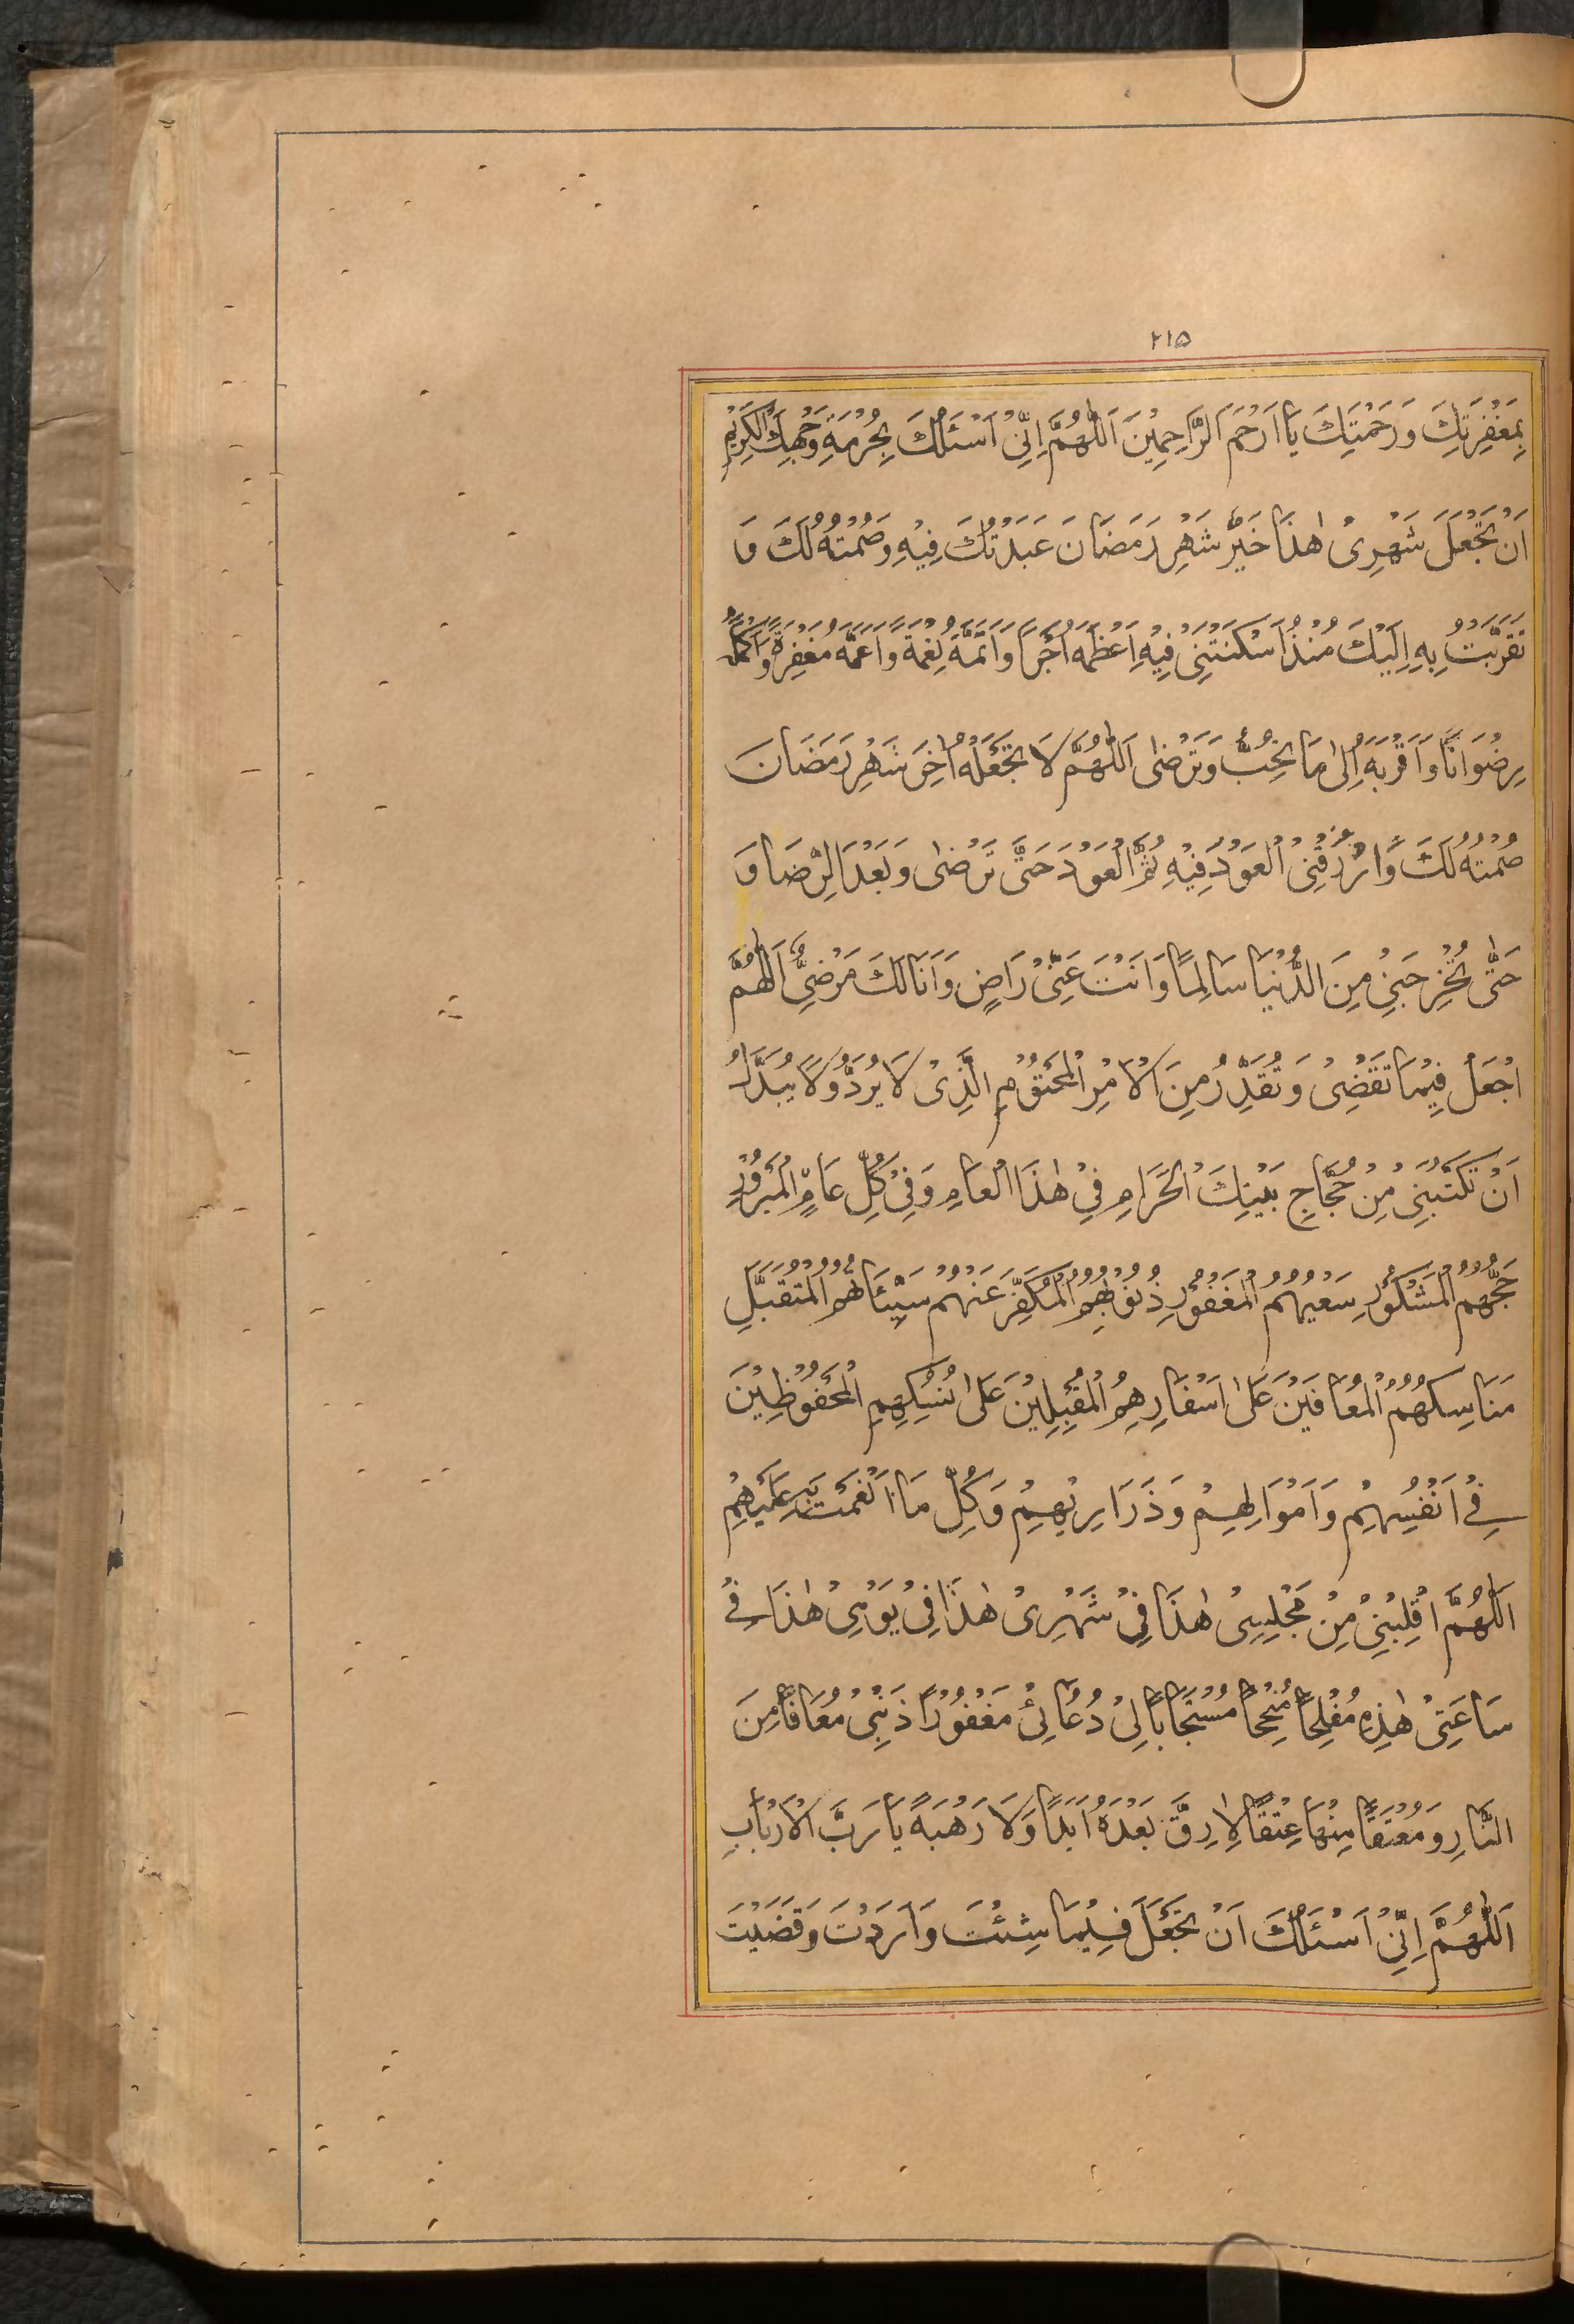 ۲۱۵
بِمَغْفِرَتِكَ وَرَحْمَتِكَ يَا اَرْحَمَ الرَّاحِمِيْنَ اَللّٰهُمَّ اِنِّيْ اَسْئَلُكَ بِحُرْمَةِ وَجْهِكَ الْكَرِيْمِ
اَنْ تَجْعَلَ شَهْرِىْ هٰذَا خَيْرَ شَهْرِ رَمَضَانَ عَبَدْتُكَ فِيْهِ وَصُمْتُهُ لَكَ وَ
تَقَرَّبْتُ بِهِ اِلَيْكَ مُنْذُ اَسْكَنْتَنِىْ فِيْهِ اَعْظَمَهُ اَجْرًا وَاَتَمَّهُ نِعْمَةً وَاَعَمَّهُ مَغْفِرَةً وَاَكْمَلَهُ
رِضْوَانًا وَاَقْرَبَهُ اِلىٰ مَا تُحِبُّ وَتَرْضىٰ اَللّٰهُمَّ لَا تَجْعَلْهُ اٰخِرَ شَهْرِ رَمَضَانَ
صُمْتُهُ لَكَ وَارْزُقْنِىْ الْعَوْدَ فِيْهِ ثُمَّ الْعَوْدَ حَتّٰى تَرْضىٰ وَبَعْدَ الرِّضَا وَ
حَتّٰى تُخْرِجَنِىْ مِنَ الدُّنْيَا سَالِمًا وَاَنْتَ عَنِّىْ رَاضٍ وَاَنَا لَكَ مَرْضِىٌّ اَللّٰهُمَّ
اجْعَلْ فِيْمَا تَقْضِىْ وَتُقَدِّرُ مِنَ الْاَمْرِ الْمَحْتُوْمِ الَّذِىْ لَا يُرَدُّ وَلَا يُبَدَّلُ
اَنْ تَكْتُبَنِىْ مِنْ حُجَّاجِ بَيْتِكَ الْحَرَامِ فِىْ هٰذَا الْعَامِ وَفِىْ كُلِّ عَامٍ الْمَبْرُوْرِ
حَجُّهُمُ الْمَشْكُوْرِ سَعْيُهُمُ الْمَغْفُوْرِ ذُنُوْبُهُمُ الْمُكَفَّرِ عَنْهُمْ سَيِّئَاتُهُمُ الْمُتَقَبَّلِ
مَنَاسِكُهُمُ الْمُعَافَيْنَ عَلىٰ اَسْفَارِهِمُ الْمُقْبِلِيْنَ عَلىٰ نُسُكِهِمِ الْمَحْفُوْظِيْنَ
فِىْ اَنْفُسِهِمْ وَاَمْوَالِهِمْ وَذَرَارِيْهِمْ وَكُلِّ مَا اَنْعَمْتَ بِهِ عَلَيْهِمْ
اَللّٰهُمَّ اقْلِبْنِىْ مِنْ مَجْلِسِىْ هٰذَا فِىْ شَهْرِىْ هٰذَا فِىْ يَوْمِىْ هٰذَا فِىْ
سَاعَتِىْ هٰذِهِ مُفْلِحًا مُنْجِحًا مُسْتَجَابًا لِىْ دُعَائِىْ مَغْفُوْرًا ذَنْبِىْ مُعَافًا مِنَ
النَّارِ وَمُعْتَقًا مِنْهَا عِتْقًا لَا رِقَّ بَعْدَهُ اَبَدًا وَلَا رَهْبَةً يَا رَبَّ الْاَرْبَابِ
اَللّٰهُمَّ اِنِّىْ اَسْئَلُكَ اَنْ تَجْعَلَ فِيْمَا شِئْتَ وَاَرَدْتَ وَقَضَيْتَ